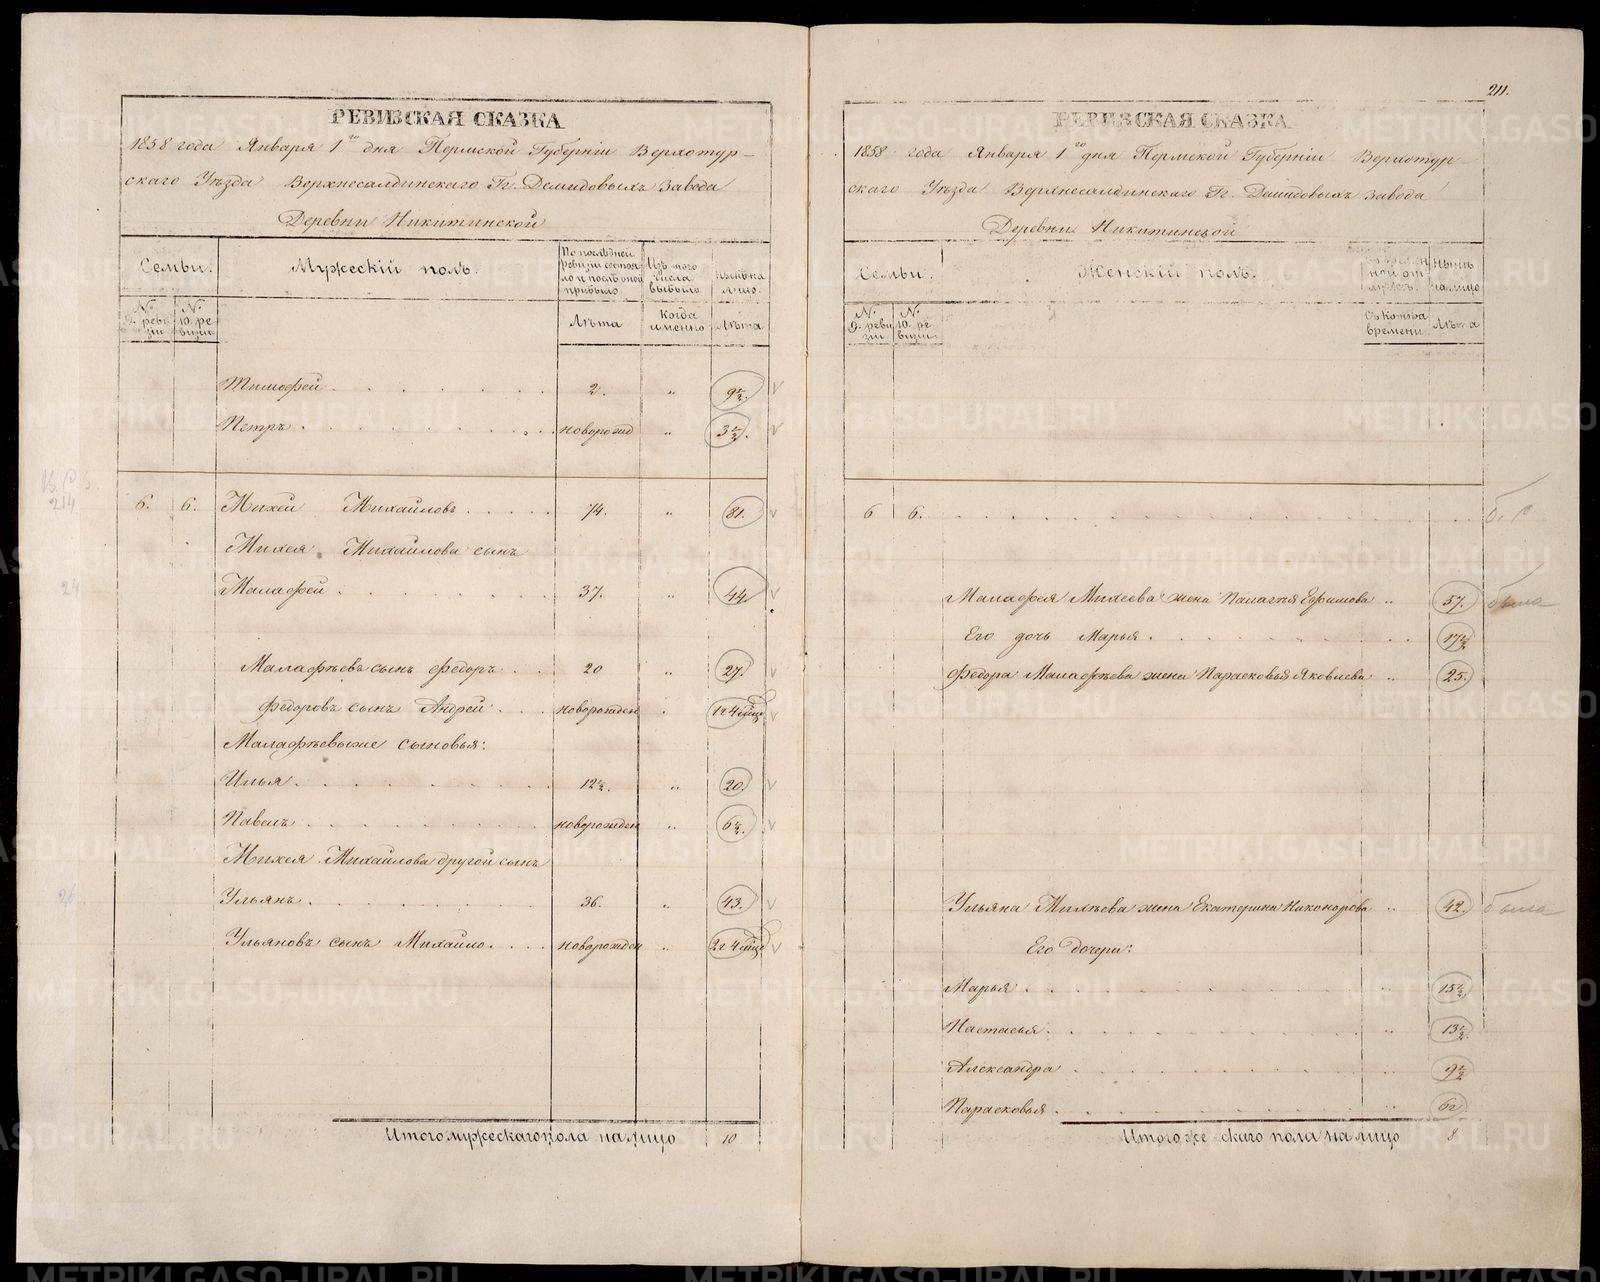 РЕВИЗСКАЯ СКАЗКА
1858 года Января 1го дня Пермской Губернiи Верхотур-
скаго Уѣзда Верхнесалдинскаго Гг. Демидовыхъ Завода
Деревни Никитинской
Семьи. Мужескiй полъ. По послѣдней ревизiи состояло и послѣ оной прибыло. Изъ того числа выбыло Нынѣ на лицо.
№ 9. ревизiи № 10. ревизiи Лѣта Когда именно Лѣта
Тимофей 2. " 9½
Петръ новорожд " 3½.
6. 6. Михей Михайловъ 74. " 81.
Михея Михайлова сынъ
Малафей 37. " 44
Малафѣевъ сынъ Федоръ 20 " 27.
Федоровъ сынъ Андрей новорожден 1г 4 мѣс
Малафѣевы же сыновья:
Илья 12½. " 20.
Павелъ новорожден " 6½.
Михея Михайлова другой сынъ
Ульянъ 36. " 43.
Ульяновъ сынъ Михайло новорожден " 2г 4 мѣс
Итого мужескаго пола на лицо 10
211.
РЕВИЗСКАЯ СКАЗКА
1858 года Января 1го дня Пермской Губернiи Верхотур
скаго Уѣзда Верхнесалдинскаго Гг. Демидовыхъ Завода
Деревни Никитинской
Семьи. Женскiй полъ. Во временной отлучкѣ. Нынѣ на лицо
№ 9. ревизiи № 10. ревизiи Съ котова времени Лѣта
6 6.
Малафея Михеева жена Палагѣя Ефимова " 57. была
Его дочь Марья 17½
Федора Малафѣева жена Парасковья Яковлева " 25.
Ульяна Михѣева жена Екатерина Никонорова " 42. была
Его дочери:
Марья " 15½
Настасья " 13½
Александра " 9½
Парасковья " 6г
Итого женскаго пола на лицо 8
METRIKI.GASO-URAL.RU